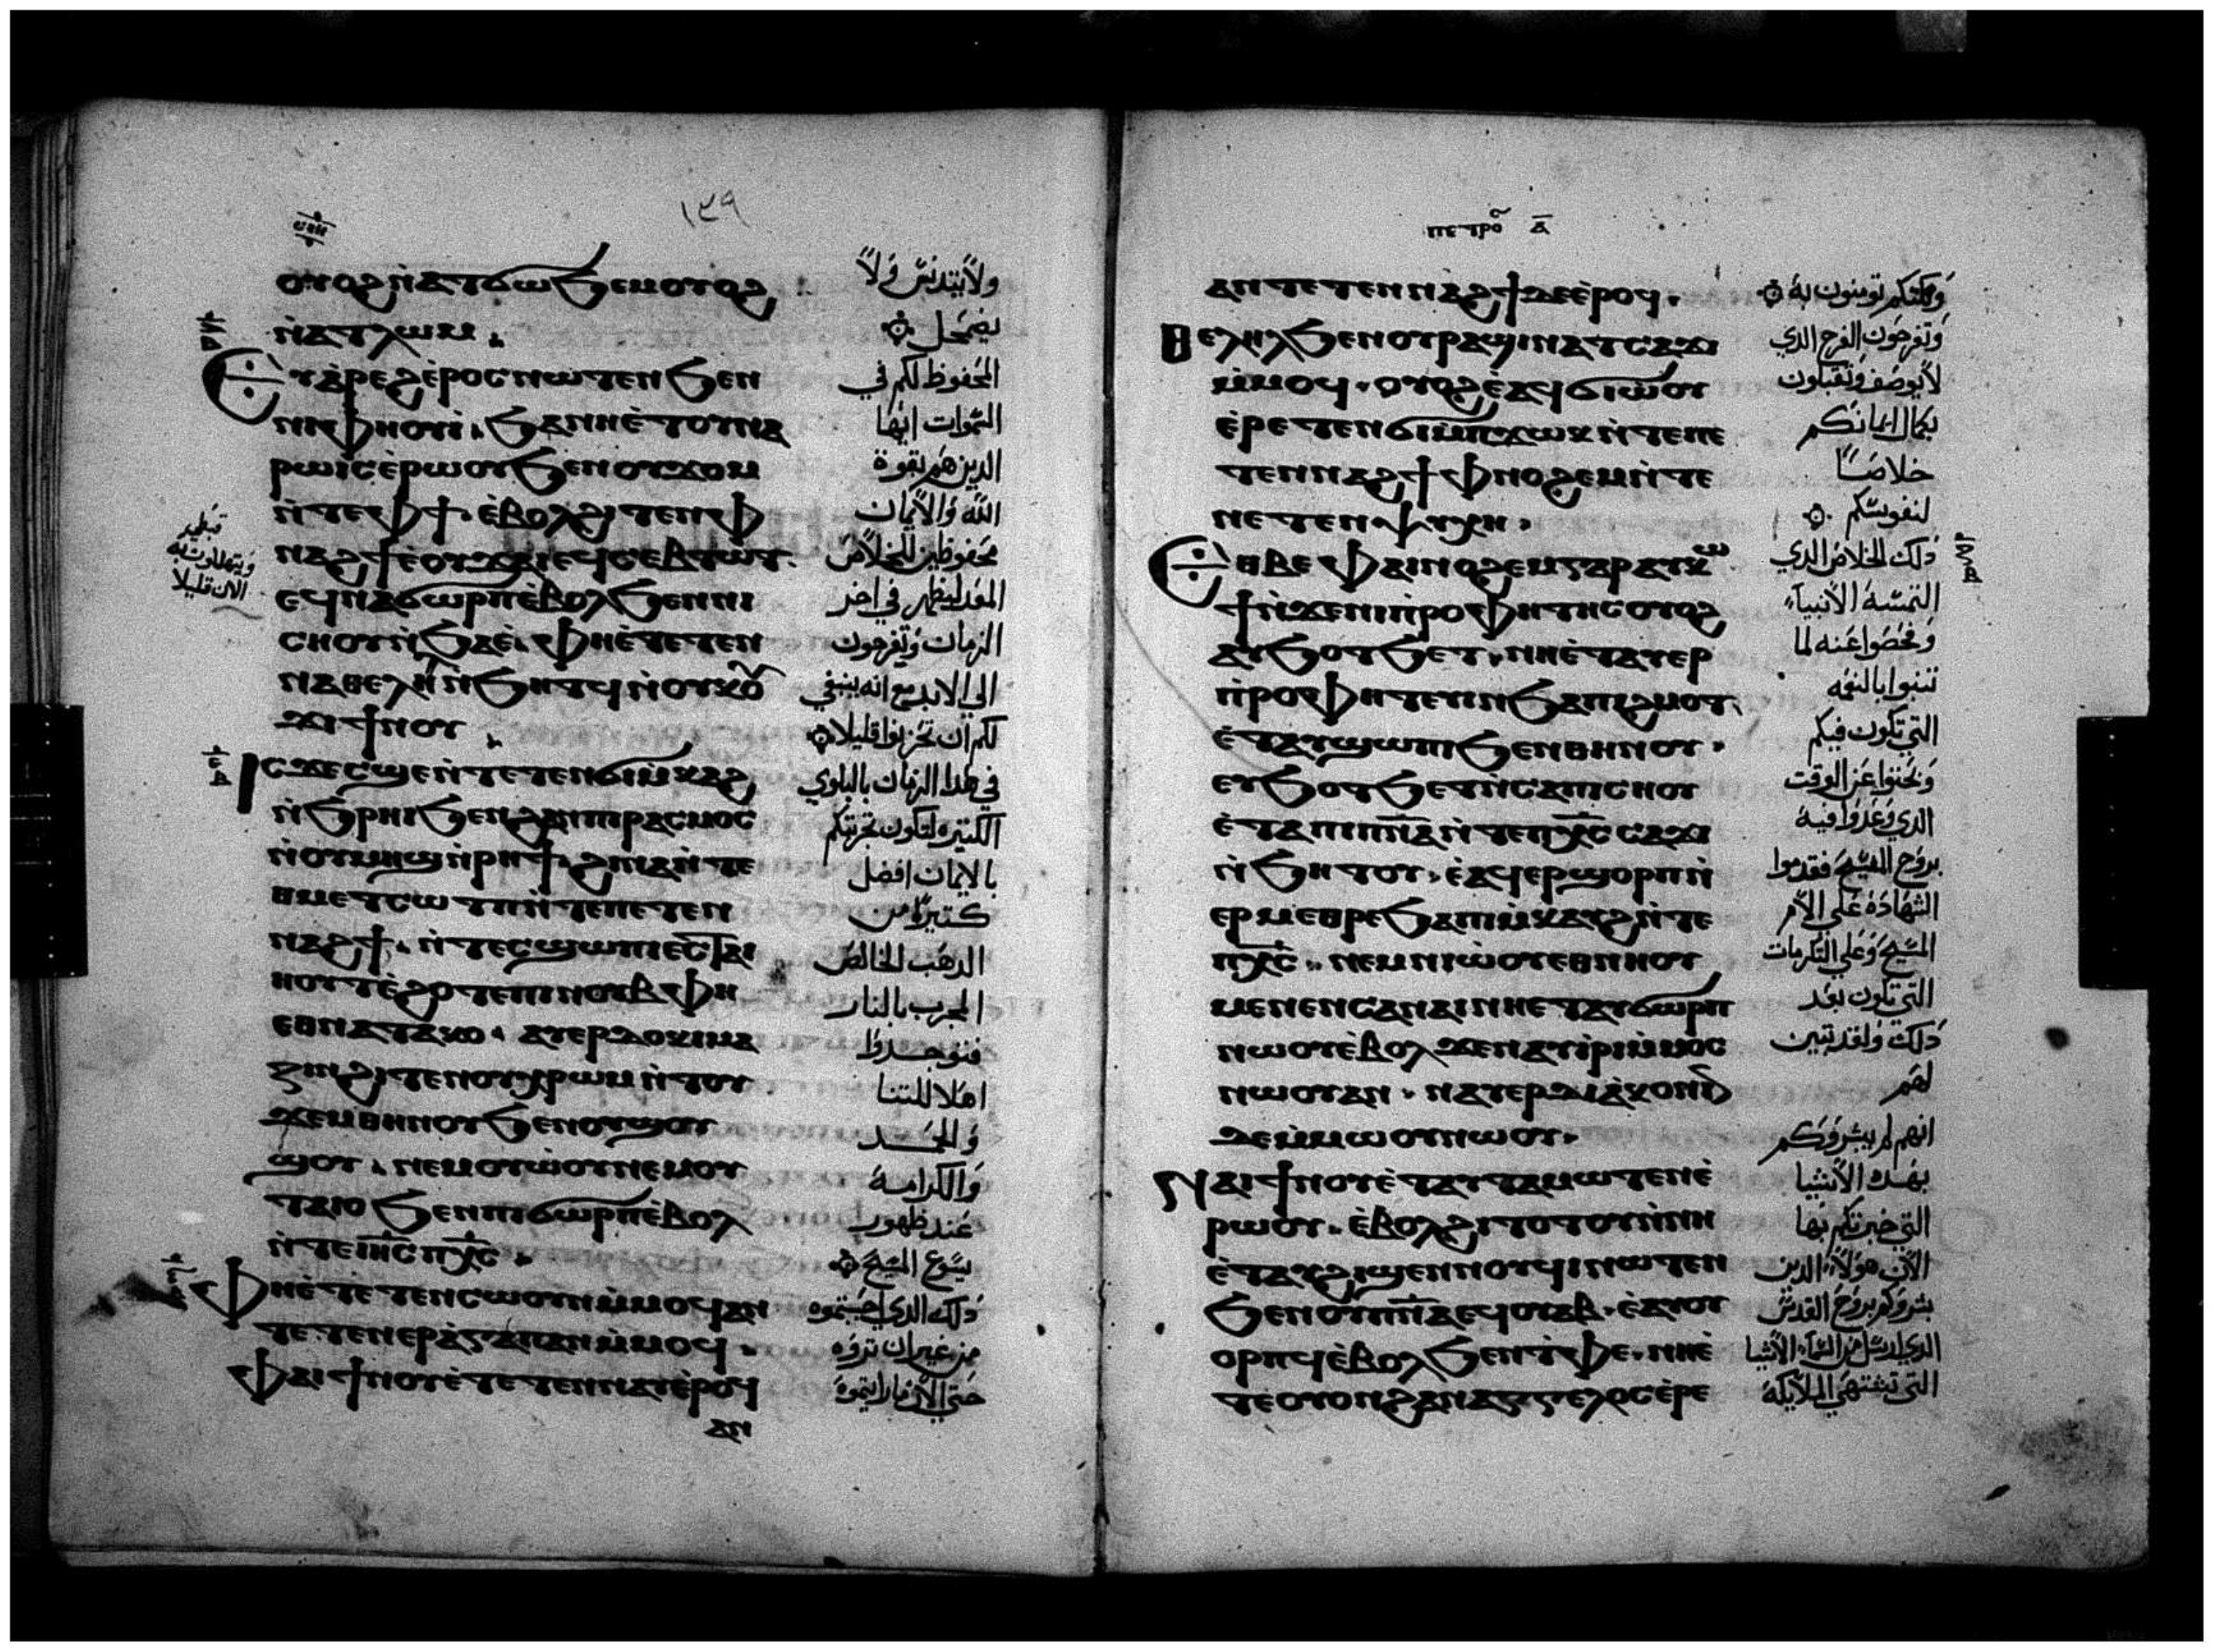 ١٣٩
ⲟⲩⲟϩ ⲛ̀ⲁⲧϭⲱϧⲉⲙ ⲟⲩⲟϩ
ⲛ̀ⲁⲧⲗⲱⲙ .
ⲉⲩⲁ̀ⲣⲉϩ ⲉ̀ⲣⲟⲥ ⲛⲱⲧⲉⲛ ϧⲉⲛ
ⲛⲓⲫⲏⲟⲩⲓ̀ . ϧⲁ ⲛⲏⲉ̀ⲧⲟⲩⲛⲁ
ⲣⲱⲓⲥ ⲉ̀ⲣⲱⲟⲩ ϧⲉⲛ ⲟⲩϫⲟⲙ
ⲛ̀ⲧⲉ ⲫϯ . ⲉ̀ⲃⲟⲗϩⲓⲧⲉⲛ ⲫ
ⲛⲁϩϯ ⲉ̀ⲟⲩϫⲁⲓ ⲉϥⲥⲉⲃⲧⲱⲧ .
ⲉϥⲛⲁϭⲱⲣⲡ ⲉ̀ⲃⲟⲗ ϧⲉⲛ ⲛⲓ
ⲥⲏⲟⲩ ⲛ̀ϧⲁⲉ̀ . ⲫⲏⲉ̀ⲧⲉⲧⲉⲛ
ⲛⲁⲑⲉⲗⲏⲗ ⲛ̀ϧⲏⲧϥ ⲛ̀ⲟⲩⲕⲟⲩ
ϫⲓ ϯⲛⲟⲩ .
ⲓⲥϫⲉ ⲥϣⲉ ⲛ̀ⲧⲉⲧⲉⲛϭⲓⲙ̀ⲕⲁϩ
ⲛ̀ϧⲣⲏⲓ ϧⲉⲛ ϩⲁⲛⲡⲓⲣⲁⲥⲙⲟⲥ
ⲛ̀ⲟⲩⲙⲏϣ ⲛ̀ⲣⲏϯ . ϩⲓⲛⲁ ⲛ̀ⲧⲉ
ⲑⲙⲉⲧⲥⲱⲧⲡ ⲛ̀ⲧⲉ ⲡⲉⲧⲉⲛ
ⲛⲁϩϯ . ⲛ̀ⲧⲉⲥϣⲱⲡⲓ ⲉⲥⲧⲁⲓ
ⲏⲟⲩⲧ ⲉ̀ϩⲟⲧⲉ ⲡⲓⲛⲟⲩⲃ ⲫⲏ
ⲉⲑⲛⲁⲧⲁⲕⲟ . ⲁⲩⲉⲣⲇⲟⲕⲓⲙⲁ
ⲍⲓⲛ ϩⲓⲧⲉⲛ ⲟⲩⲭⲣⲱⲙ ⲛ̀ⲧⲟⲩ
ϫⲉⲙ ⲑⲏⲛⲟⲩ ϧⲉⲛ ⲟⲩϣⲟⲩ
ϣⲟⲩ . ⲛⲉⲙ ⲟⲩⲱ̀ⲟⲩ ⲛⲉⲙ ⲟⲩ
ⲧⲁⲓⲟ ϧⲉⲛ ⲡϭⲱⲣⲡ ⲉ̀ⲃⲟⲗ
ⲛ̀ⲧⲉ ⲓⲏ̅ⲥ̅ ⲡⲭ̅ⲥ̅ .
ⲫⲏⲉ̀ⲧⲉⲧⲉⲛⲥⲱⲟⲩⲛ ⲙ̀ⲙⲟϥ ⲁⲛ
ⲧⲉⲧⲉⲛⲉⲣⲁ̀ⲅⲁⲡⲁⲛ ⲙ̀ⲙⲟϥ .
ⲫⲁⲓ ϯⲛⲟⲩ ⲉ̀ⲧⲉⲧⲉⲛⲛⲁⲩ ⲉ̀ⲣⲟϥ
ⲁⲛ
ولا يتدنس ولا
يضمحل
المحفوظ لكم في
السموات ايها
الدين هم بقوة
الله والايمان
محفوظين للخلاص
المعد ليظهر في اخر
الزمان وتفرحون
الي الابد مع انه ينبغي
لكم ان تحزنوا قليلا
في هدا الزمان بالبلوي
الكتيره لتكون تجربتكم
بالايمان افضل
كتيرا من
الدهب الخالص
المجرب بالنار
فتوجدوا
اهلا للتنا
والمجد
والكرامه
عند ظهور
يسوع المسيح
دلك الدي احببتموه
من غير ان تروه
حتي الان ما رايتموه
قبطي
ويتهللون به
الان قليلا
ⲡⲉⲧⲣⲟ ⲁ̅
ⲁⲛ ⲧⲉⲧⲉⲛⲛⲁϩϯ ⲇⲉ ⲉ̀ⲣⲟϥ .
ⲑⲉⲗⲏⲗ ϧⲉⲛ ⲟⲩⲣⲁϣⲓ ⲛ̀ⲁⲧⲥⲁϫⲓ
ⲙ̀ⲙⲟϥ . ⲟⲩⲟϩ ⲉ̀ⲁϥϭⲓⲱ̀ⲟⲩ
ⲉ̀ⲣⲉⲧⲉⲛϭⲓ ⲙ̀ⲡϫⲱⲕ ⲛ̀ⲧⲉ ⲡⲉ
ⲧⲉⲛⲛⲁϩϯ ⲫⲛⲟϩⲉⲙ ⲛ̀ⲧⲉ
ⲛⲉⲧⲉⲛⲯⲩⲭⲏ .
ⲉⲑⲃⲉ ⲫⲁⲓ ⲛⲟϩⲉⲙ ⲅⲁⲣ ⲁⲩⲕⲱ
ϯ ⲛ̀ϫⲉ ⲛⲓⲡ̀ⲣⲟⲫⲏⲧⲏⲥ ⲟⲩⲟϩ
ⲁⲩϧⲟⲧϧⲉⲧ . ⲛⲏⲉ̀ⲧⲁⲩⲉⲣ
ⲡ̀ⲣⲟⲫⲏⲧⲉⲩⲓⲛ ϧⲁ ⲡⲓϩⲙⲟⲧ
ⲉ̀ⲧⲁϥϣⲱⲡⲓ ϧⲉⲛ ⲑⲏⲛⲟⲩ .
ⲉⲩϧⲟⲧϧⲉⲧ ⲛ̀ⲥⲁ ⲡⲓⲥⲏⲟⲩ
ⲉ̀ⲧⲁ ⲡⲓⲡ̅ⲛ̅ⲁ̅ ⲛ̀ⲧⲉ ⲡⲭ̅ⲥ̅ ⲥⲁϫⲓ
ⲛ̀ϧⲏⲧⲟⲩ . ⲉ̀ⲁϥⲉⲣϣⲟⲣⲡ ⲛ̀
ⲉⲣⲙⲉⲑⲣⲉ ϧⲁ ⲛⲓⲙ̀ⲕⲁⲩϩ ⲛ̀ⲧⲉ
ⲡⲭ̅ⲥ̅ . ⲛⲉⲙ ⲛⲓⲱ̀ⲟⲩ ⲉⲑⲛⲏⲟⲩ
ⲙⲉⲛⲉⲛⲥⲁ ⲛⲁⲓ ⲛⲏⲉ̀ⲧⲁⲩϭⲱⲣⲡ
ⲛⲱⲟⲩ ⲉ̀ⲃⲟⲗ ϫⲉ ⲛⲁⲩⲓ̀ⲣⲓ ⲙ̀ⲙⲟⲥ
ⲛⲱⲟⲩ ⲁⲛ . ⲛⲁⲩⲉⲣⲇⲓⲁ̀ⲕⲟⲛⲓⲛ
ⲇⲉ ⲙ̀ⲙⲱⲟⲩ ⲛⲱⲟⲩ .
ⲛⲁⲓ ϯⲛⲟⲩ ⲉ̀ⲧⲁⲩⲧⲁⲙⲱⲧⲉⲛ ⲉ̀
ⲣⲱⲟⲩ . ⲉ̀ⲃⲟⲗϩⲓⲧⲟⲧⲟⲩ ⲛ̀ⲛⲏ
ⲉ̀ⲧⲁⲩϩⲓϣⲉⲛⲛⲟⲩϥⲓ ⲛⲱⲧⲉⲛ
ϧⲉⲛ ⲟⲩⲡ̅ⲛ̅ⲁ̅ ⲉϥⲟⲩⲁⲃ . ⲉ̀ⲁⲩⲟⲩ
ⲟⲣⲡϥ ⲉ̀ⲃⲟⲗ ϧⲉⲛ ⲧ̀ⲫⲉ . ⲛⲏⲉ̀
ⲧⲉ ⲟⲩⲟⲛ ϩⲁⲛⲁⲅⲅⲉⲗⲟⲥ ⲉ̀ⲣⲉ
ولكنكم تومنون به
وتفرحون الفرح الدي
لا يوصف وتقبلون
بكمال ايمانكم
خلاصا
لنفوسكم
دلك الخلاص الدي
التمسه الانبياء
وفحصوا عنه لما
تنبوا بالنعمه
التي تكون فيكم
وبحتوا عن الوقت
الدي وعدوا فيه
بروح المسيح فقدموا
الشهاده علي الام
المسيح وعلي التكرمات
التي تكون بعد
دلك ولقد تبين
لهم
انهم لم يبشروكم
بهده الاشيا
التي خبرتكم بها
الان هولاء الدين
بشروكم بروح القدس
الدي ارسل من السماء الاشيا
التي تشتهي الملايكه